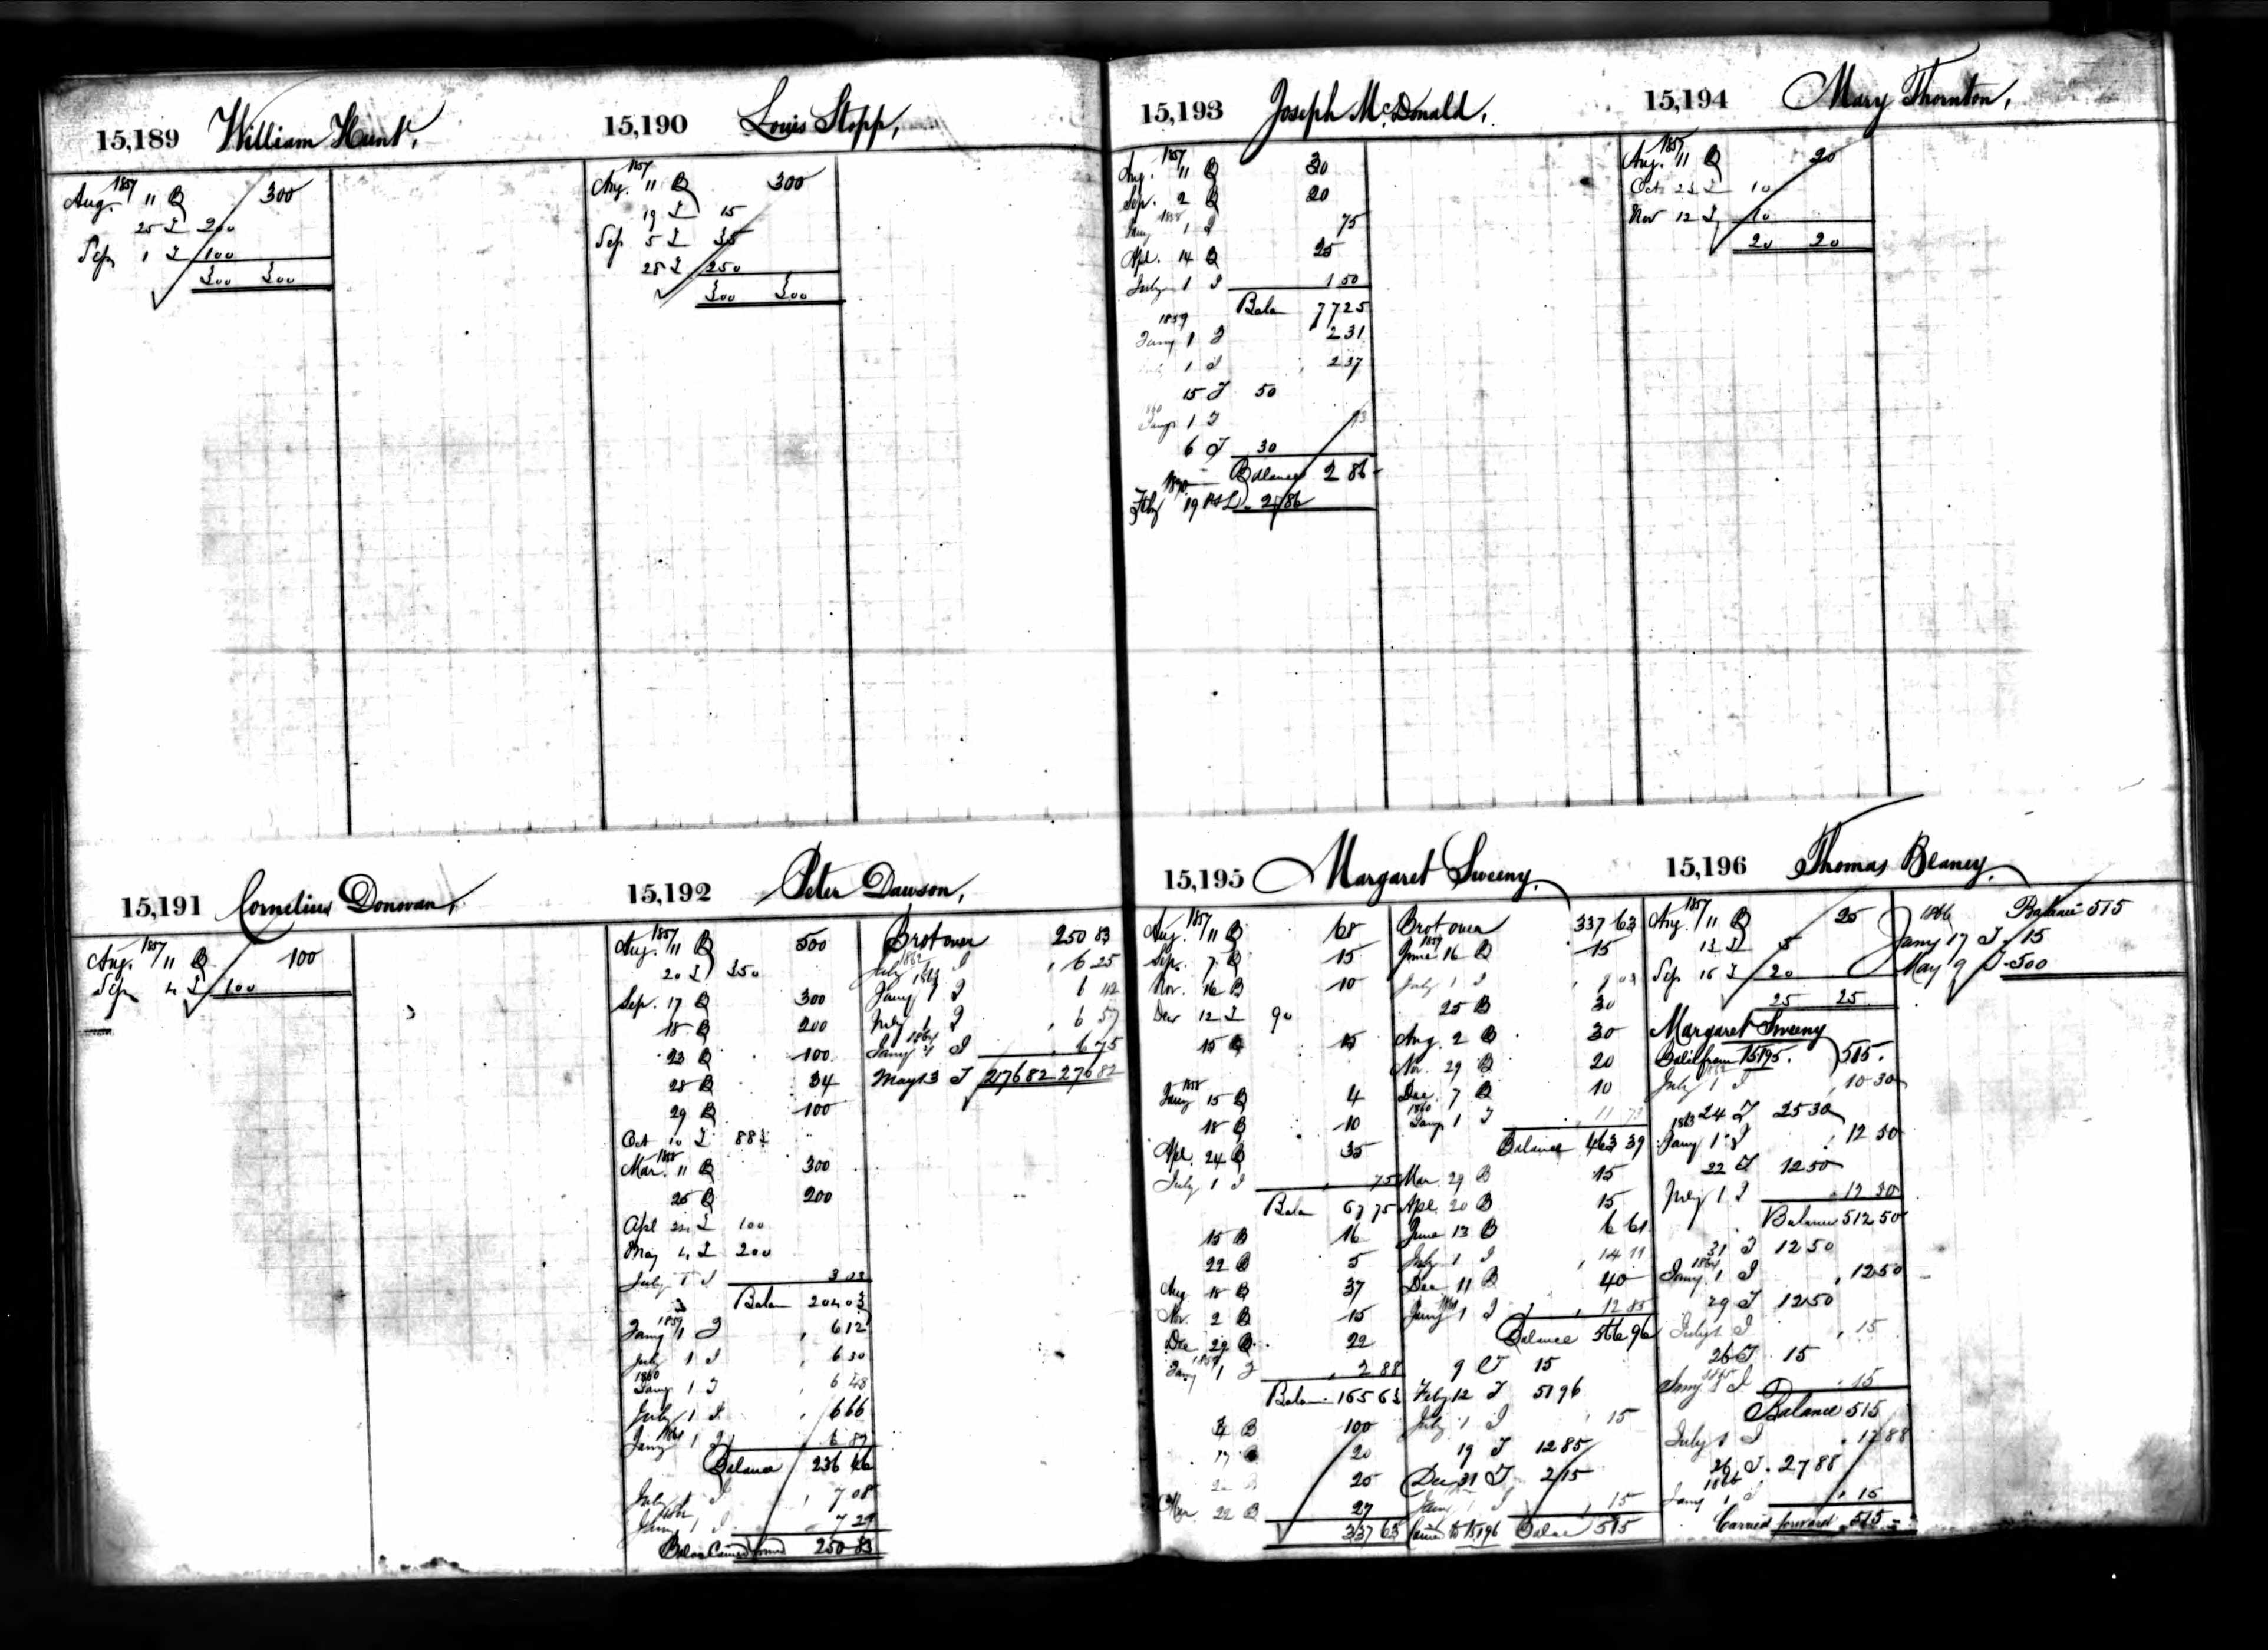 15,189 William Hunt,
1857
Aug. 11 B 300
25 I 200
Sep 1 I 100
300 300
15,190 Louis Stopp,
1857
Aug. 11 B 300
19 I 15
Sep 5 I 35
28 I 250
300 300
15,191 Cornelius Donovan,
1857
Aug. 11 B 100
Sep 4 I 100
15,192 Peter Dawson,
1857
Aug. 11 B 500
20 I 350
Sep. 17 B 300
18 B 200
23 B 100
28 B 34
29 B 100
Oct 10 I 883
1858
Mar. 11 B 300
25 B 200
Apl 22 I 100
May 4 I 200
July 1 I 3 03
Balan 204 03
1859
Jany 1 I 6 12
July 1 I 6 30
1860
Jany 1 I 6 48
July 1 I 6 66
1861
Jany 1 I 6 87
Balance 236 46
July 1 I 7 08
1862
Jany 1 I 7 29
Balan Carried forward 250 83
Brot over 250 83
1862
July 1 I 6 25
1863
Jany 1 I 6 42
July 1 I 6 57
1864
Jany 1 I 6 75
May 13 I 276 82 276 82
15,193 Joseph McDonald,
1857
Aug. 11 B 30
Sep. 2 B 20
1858
Jany 1 I 75
Apl. 14 B 25
July 1 I 1 50
Balan 77 25
1859
Jany 1 I 2 31
July 1 I 2 37
15 I 50
Jany 1 I 93
6 I 30
Balance 2 86
Feby 19 2 86
15,194 Mary Thornton,
1857
Aug. 11 B 20
Oct 23 I 10
Nov 12 I 10
20 20
15,195 Margaret Sweeny,
1857
Aug. 11 B 68
Sep. 7 B 15
Nov. 16 B 10
Dec 12 I 90
15 B 15
1858
Jany 15 B 4
18 B 10
Apl. 24 B 35
July 1 I 75
Balan 67 75
15 B 16
22 B 5
Aug 18 B 37
Nov. 2 B 15
Dec 29 B 22
1859
Jany 1 I 2 88
Balan 165 63
3 B 100
20
25
Mar 22 B 27
337 63
Brot over 337 63
1859
June 16 B 15
July 1 I
25 B 30
Aug. 2 B 30
Nov. 29 B 20
Dec. 7 B 10
1860
Jany 1 I 11 73
Balance 463 39
Mar. 29 B 15
Apl. 20 B 15
June 13 B 6 61
July 1 I 14 11
Dec 11 B 40
1861
Jany 1 I 12 85
Balance 566 96
9 I 15
Feby 12 I 51 96
July 1 I 15
19 I 12 85
Dec 31 I 2 15
Jany 1 I 15
Carried to 15196 Balance 515
15,196 Thomas Blaney,
1857
Aug. 11 B 25
13 I 5
Sep 16 I 20
25 25
Margaret Sweeny
Bal from 15195. 515.
1862
July 1 I 10 30
24 I 25 30
1863
Jany 1 I 12 50
22 I 12 50
July 1 I 12 50
Balance 512 50
31 I 12 50
1864
Jany 1 I 12 50
29 I 12 50
July 1 I 15
26 I 15
1865
Jany 1 I 15
Balance 515
July 1 I 12 88
26 I 27 88
1866
Jany 1 I 15
Carried forward 515
1866 Balance 515
Jany 17 I 15
May 9 I 500